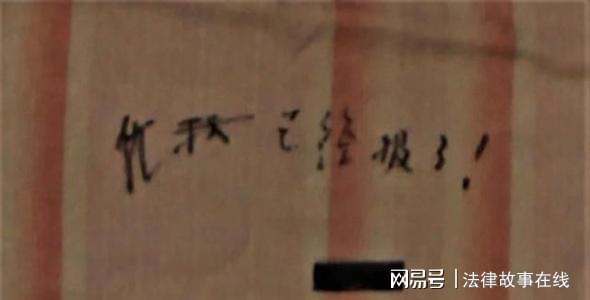 仇我已经报了!
网易号 | 法律故事在线